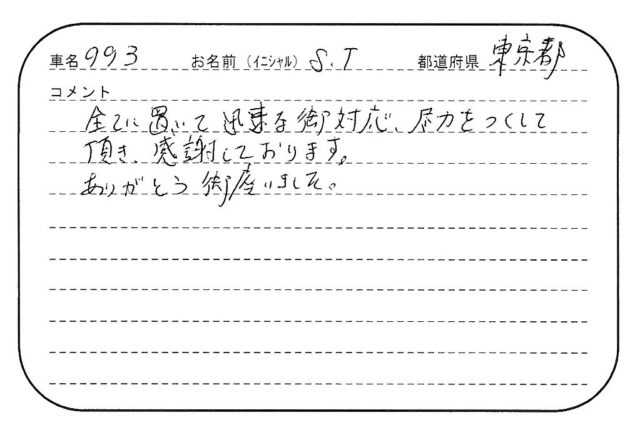 車名 993 お名前（イニシャル） S.T 都道府県 東京都
コメント
全てに置いて迅速な御対応、尽力をつくして
頂き、感謝しております。
ありがとう御座いました。